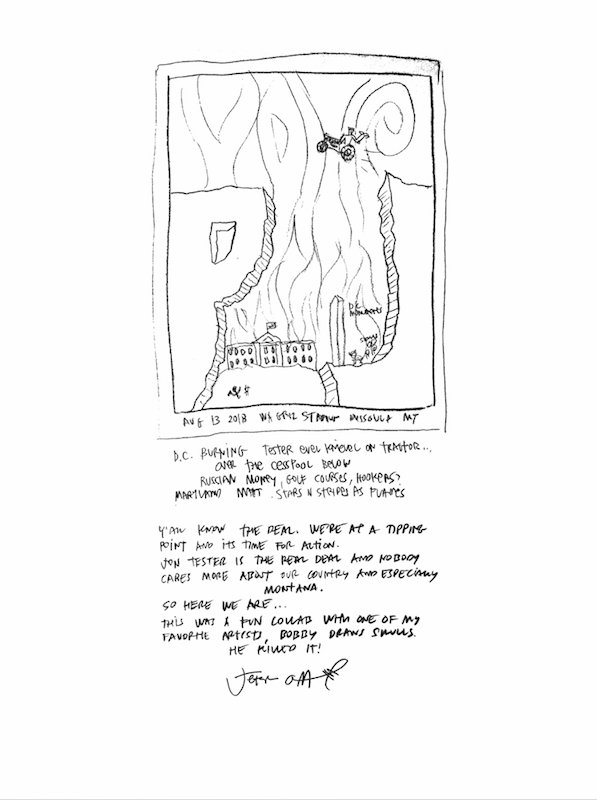 D.C. MONUMENTS
SKULLS
AUG 13 2018 WA GRIZ STADIUM MISSOULA MT
D.C. BURNING TESTER EVEL KNIEVEL ON TRACTOR...
OVER THE CESSPOOL BELOW
RUSSIAN MONEY, GOLF COURSES, HOOKERS?
MARYLAND MATT. STARS N STRIPES AS FLAMES
Y'ALL KNOW THE DEAL. WE'RE AT A TIPPING
POINT AND ITS TIME FOR ACTION.
JON TESTER IS THE REAL DEAL AND NOBODY
CARES MORE ABOUT OUR COUNTRY AND ESPECIALLY
MONTANA.
SO HERE WE ARE...
THIS WAS A FUN COLLAB WITH ONE OF MY
FAVORITE ARTISTS, BOBBY DRAWS SKULLS.
HE KILLED IT!